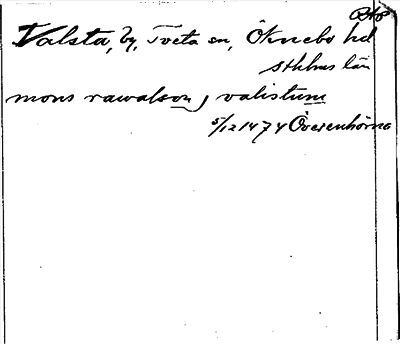 Valsta, by, Tveta sn, Öknebo hd
sthlms län
mons rawalson j valistum
5/12 1474 Överenhörna